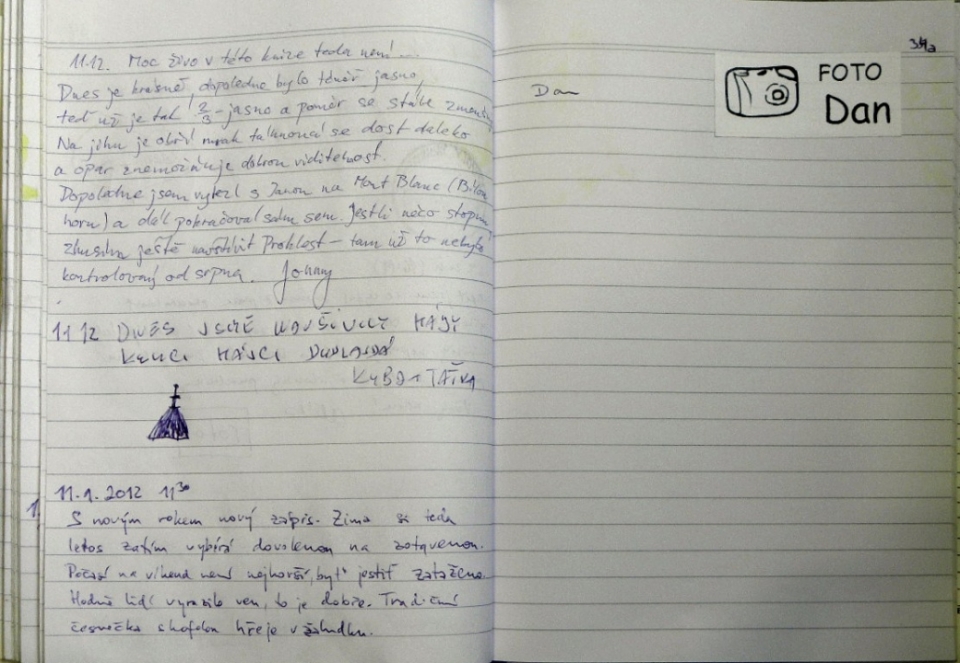 11.12. Moc živo v této knize teda není...
Dnes je krásně, dopoledne bylo téměř jasno,
teď už je tak 2/3 - jasno a poměr se stále
Na jihu je obří mrak táhnoucí se dost daleko
a opar znemožňuje dobrou viditelnost.
Dopoledne jsem vylezl s Janou na Mont Blanc (Bílou
horu) a dál pokračoval sám sem. Jestli něco stopnu
zkusím ještě navštívit Proklest - tam už to nebylo
kontrolovaný od srpna. Johny
11 12 DNES JSME
KYBO + TAŤKA
11.1.2012 11³⁰
S novým rokem nový zápis. Zima si teda
letos zatím vybírá dovolenou na zotavenou.
Počasí na víkend není nejhorší, byť jestiť zataženo.
Hodně lidí vyrazilo ven, to je dobře. Tradiční
česnečka s kofolou hřeje v žaludku.
34a
Dan
FOTO
Dan